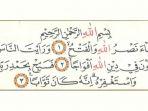 بِسْمِ اللَّهِ الرَّحْمَٰنِ الرَّحِيمِ
جَاءَ نَصْرُ اللَّهِ وَالْفَتْحُ ۝١ وَرَأَيْتَ النَّاسَ
فِي دِينِ اللَّهِ أَفْوَاجًا ۝٢ فَسَبِّحْ بِحَمْدِ رَبِّكَ
وَاسْتَغْفِرْهُ إِنَّهُ كَانَ تَوَّابًا ۝٣